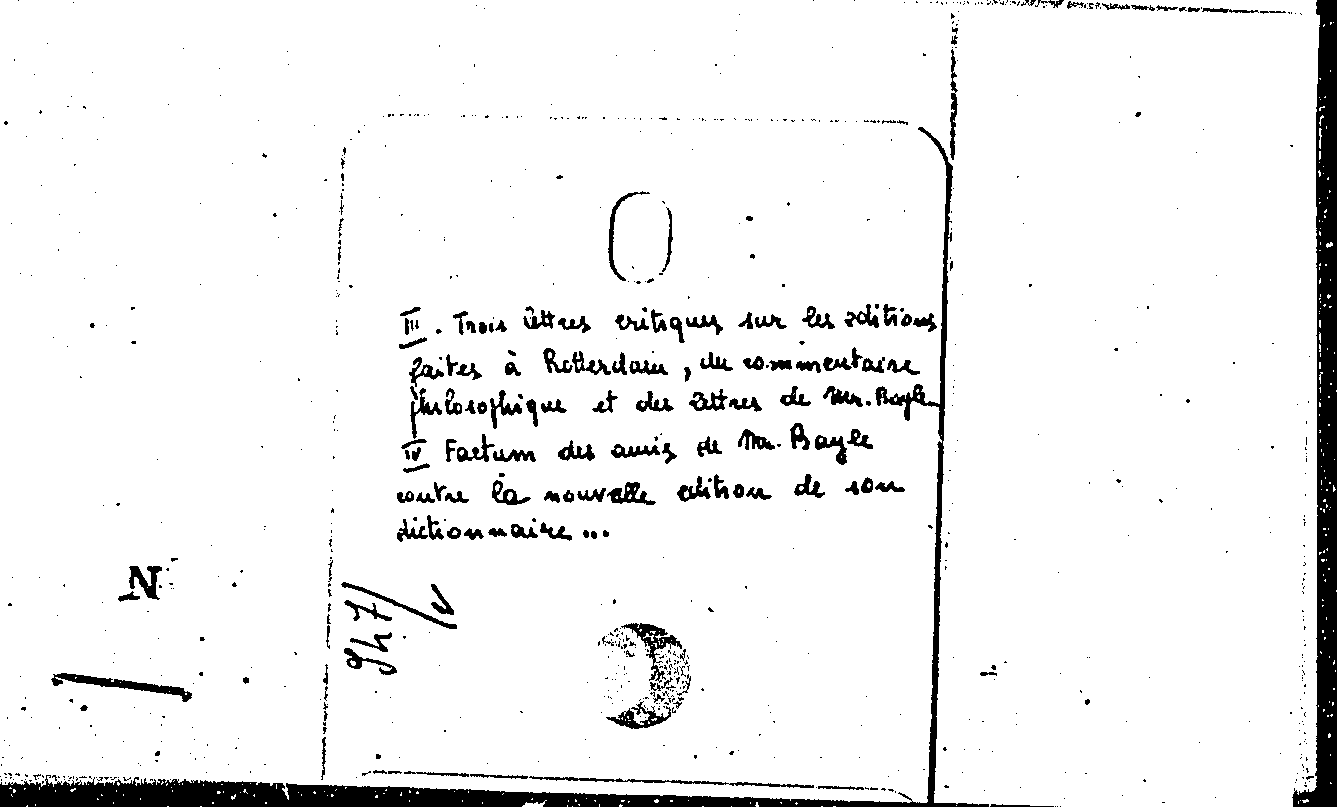 III. Trois lettres critiques sur les editions
faites à Rotterdam, du commentaire
philosophique et des lettres de Mr. Bayle
IV Factum des amis de Mr. Bayle
contre la nouvelle edition de son
dictionnaire...
N